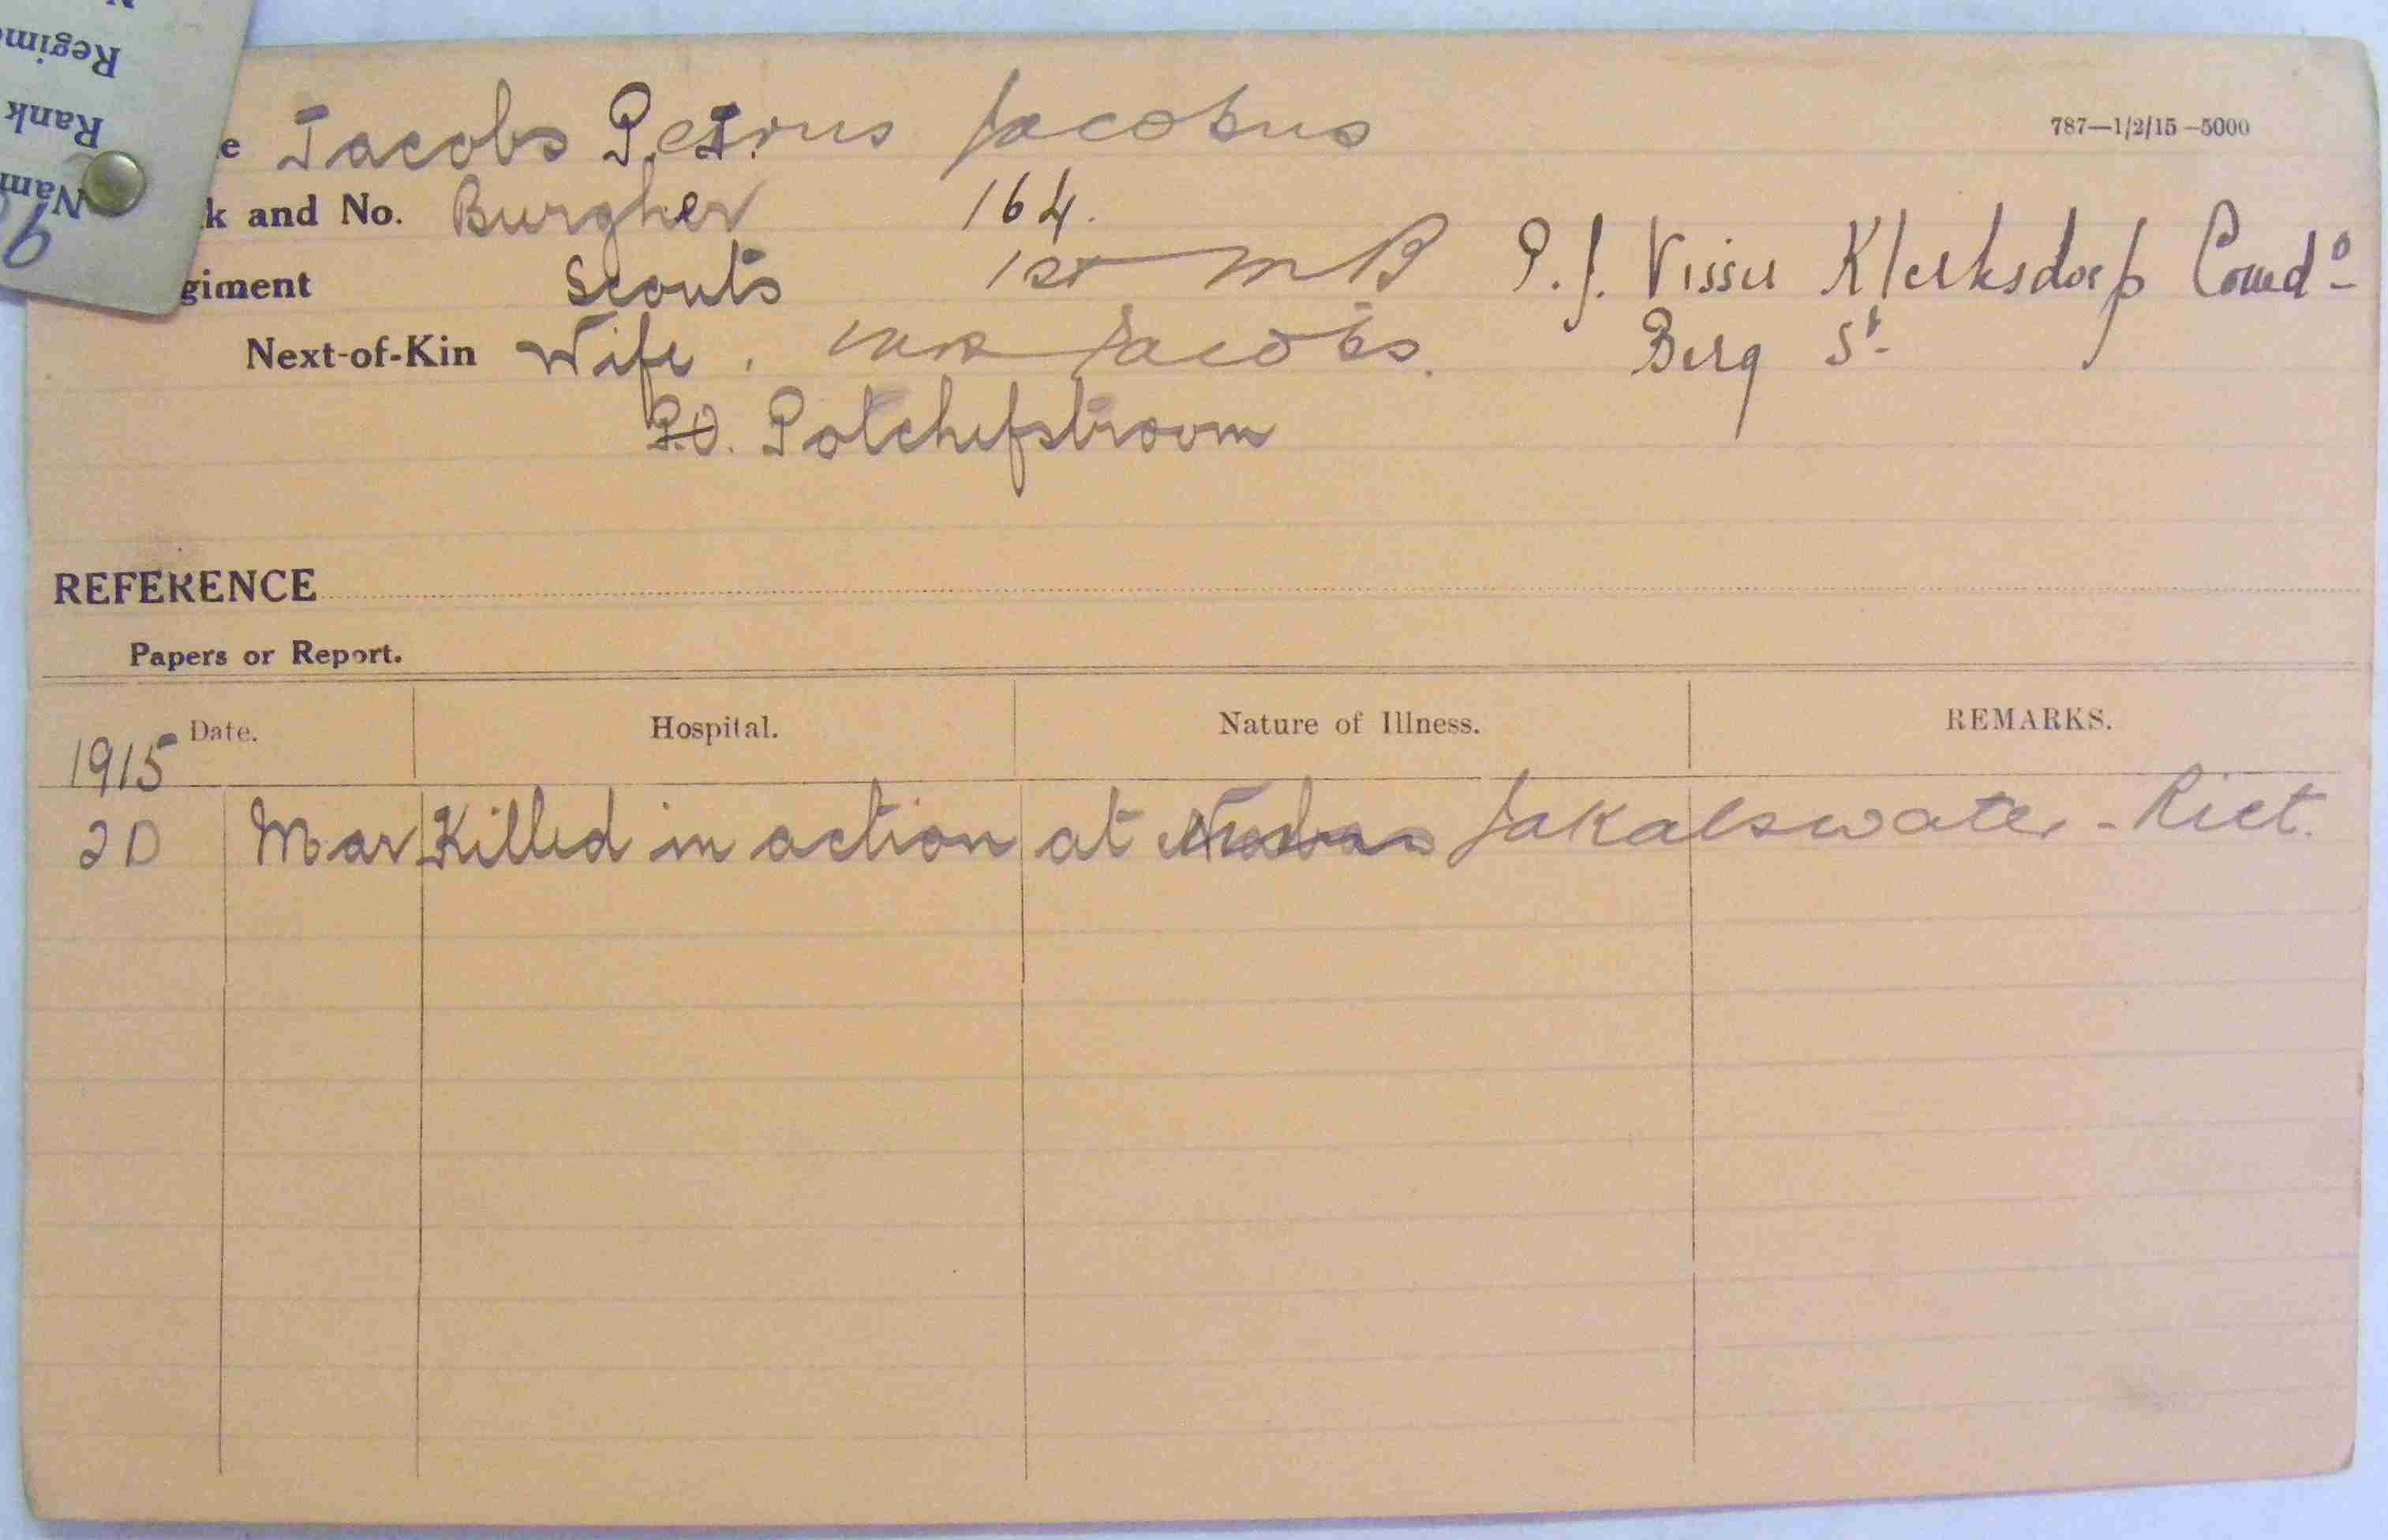 Regim
Rank
Nam
9
787—1/2/15—5000
e Jacobs P.J. Petrus Jacobus
k and No. Burgher 164.
giment Scouts 1st M B P. J. Visser Klerksdorp Comdo
Next-of-Kin Wife. Mrs Jacobs. Berg St
P.O. Potchefstroom
REFERENCE
Papers or Report.
Date. Hospital. Nature of Illness. REMARKS.
1915
20 Mar Killed in action at Jakalswater - Riet.